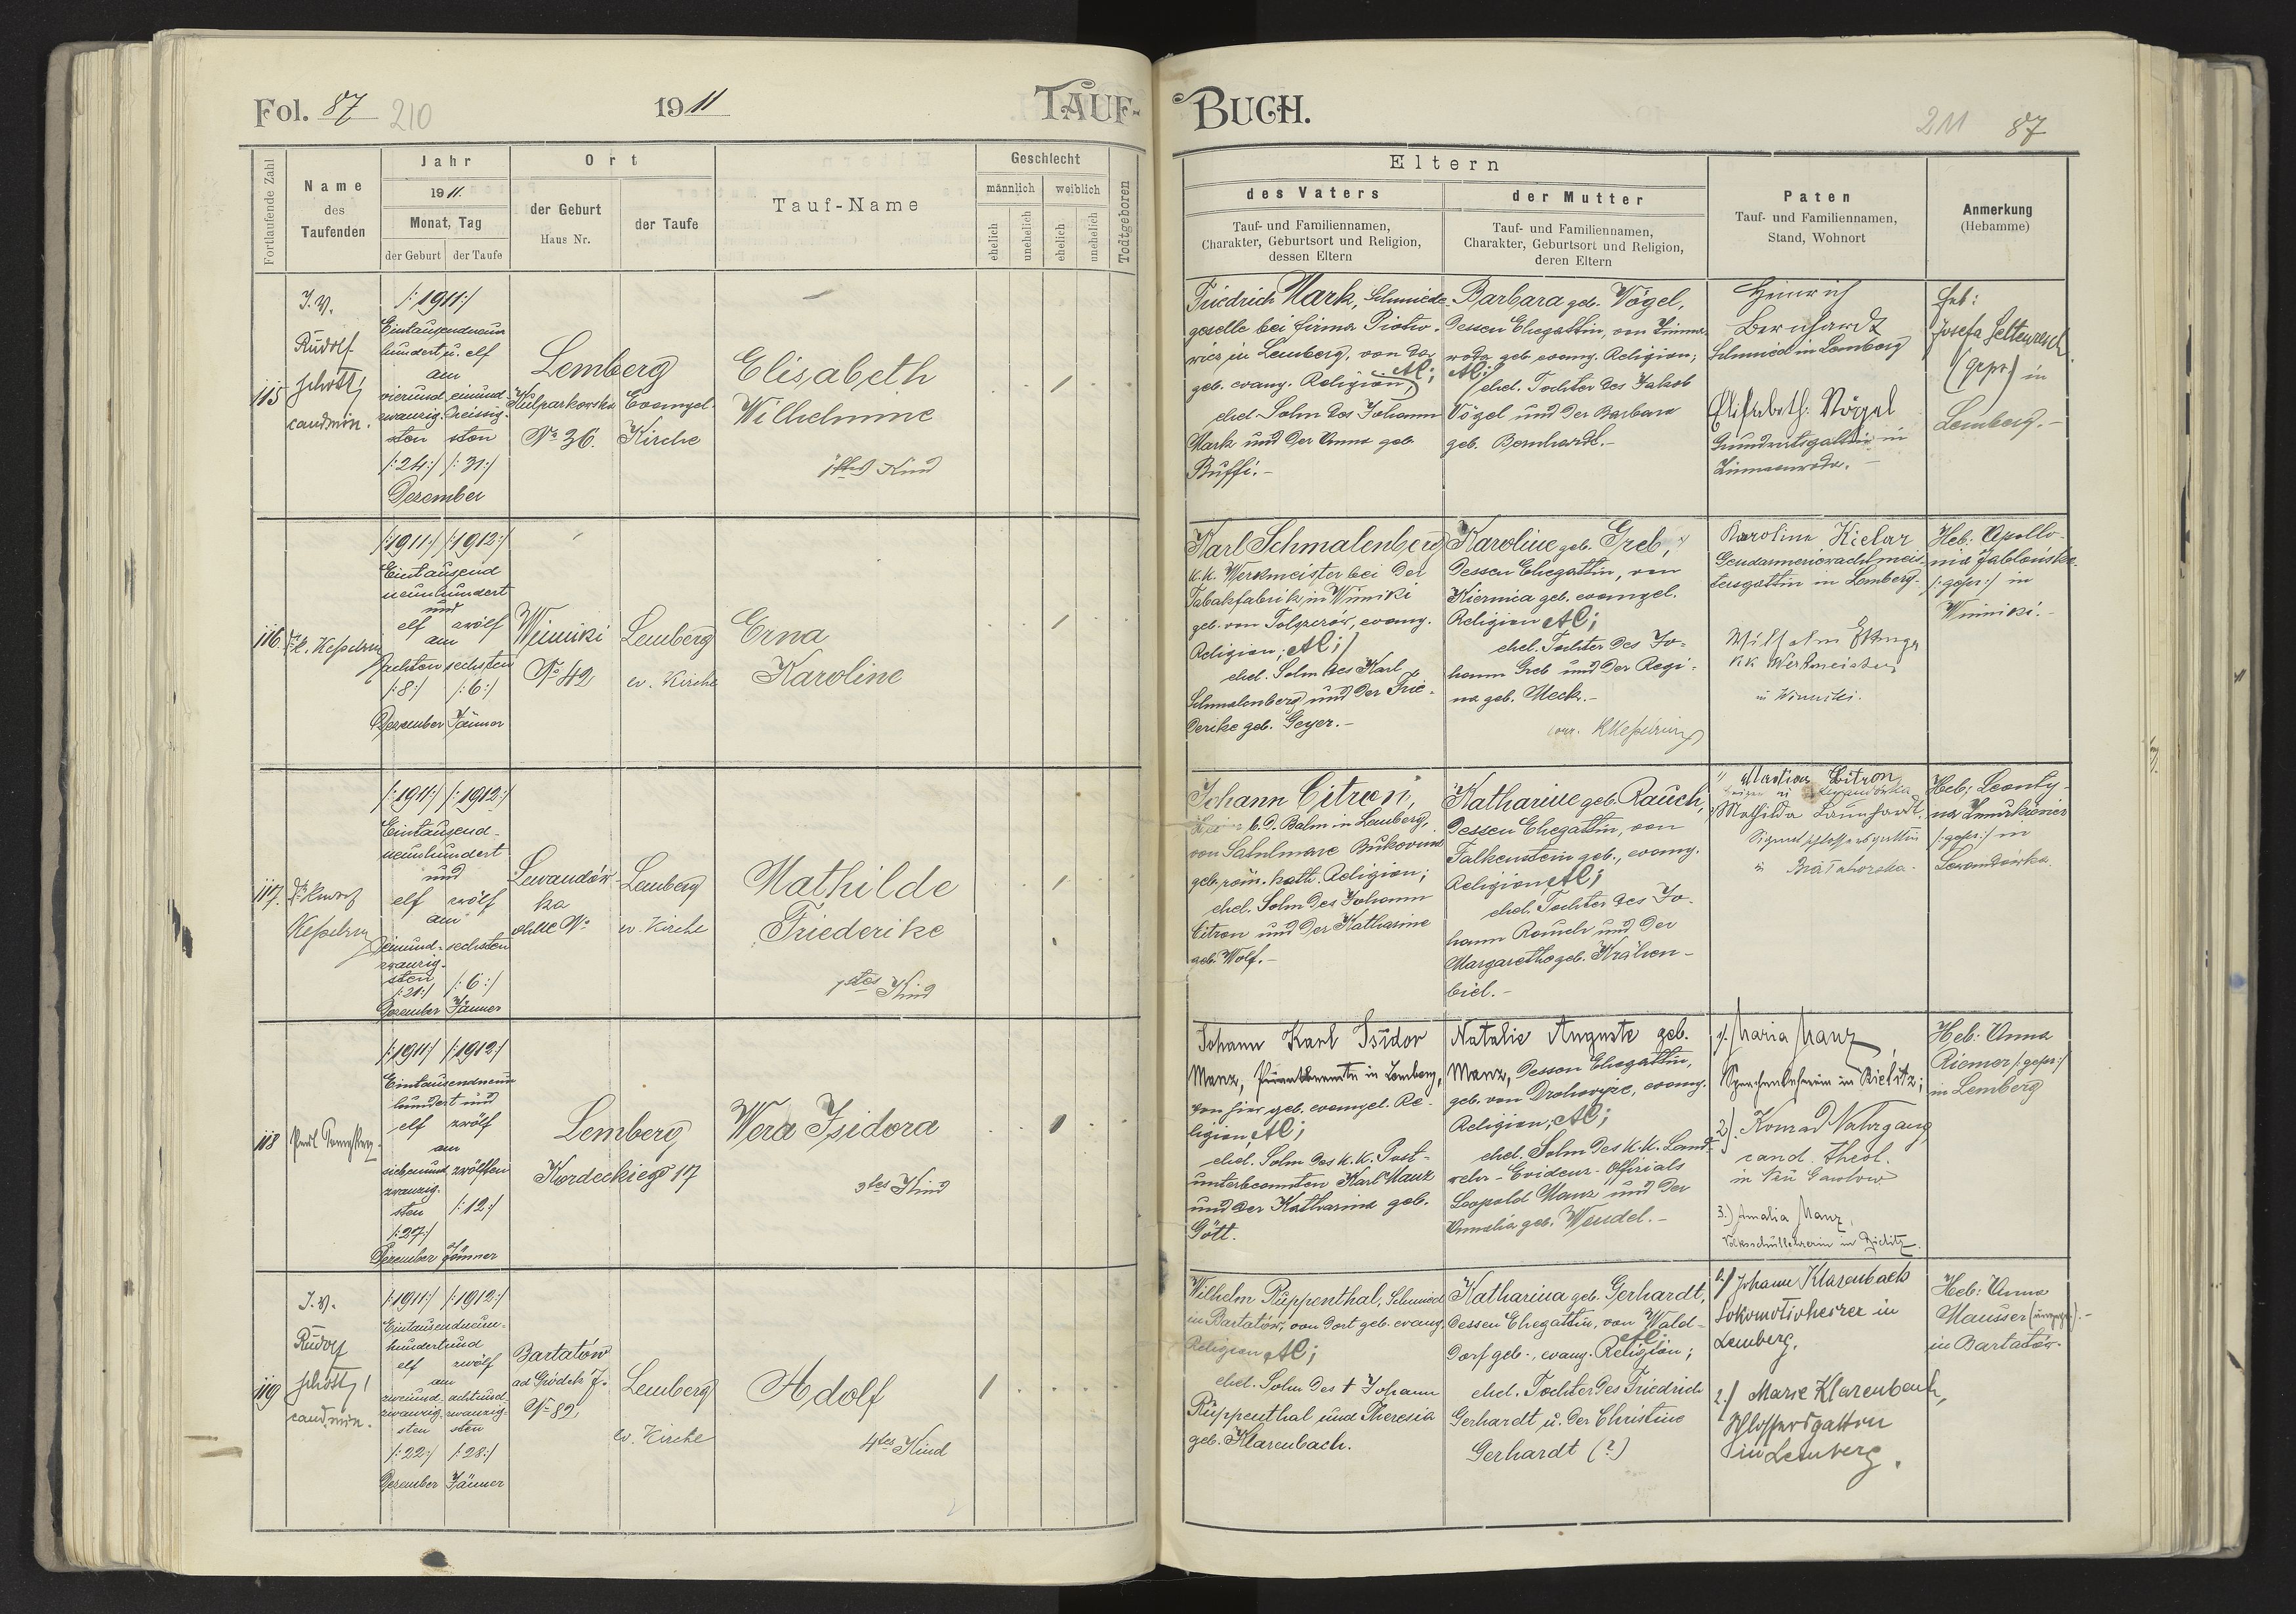 Fol. 87 210
1911
TAUF-
BUCH.
211 87
Fortlaufende Zahl
Name
des
Taufenden
Jahr
1911.
Monat, Tag
der Geburt der Taufe
Ort
der Geburt
Haus Nr.
der Taufe
Tauf-Name
Geschlecht
männlich weiblich
ehelich
unehelich
ehelich
unehelich
Todtgeboren
Eltern
des Vaters
Tauf- und Familiennamen,
Charakter, Geburtsort und Religion,
dessen Eltern
der Mutter
Tauf- und Familiennamen,
Charakter, Geburtsort und Religion,
deren Eltern
Paten
Tauf- und Familiennamen,
Stand, Wohnort
Anmerkung
(Hebamme)
115
I. V.
Rudolf
Schott
cand. min.
/:1911:/
Eintausendneun
hundert u. elf
am
vierund- einund-
zwanzig- dreissig-
sten sten
/:24:/ /:31:/
Dezember
Lemberg
Kulparkowska Evangel.
No 36. Kirche
Elisabeth
Wilhelmine
1tes Kind
Friedrich Mark, Schmiede-
geselle bei Firma Piotro-
wicz in Lemberg, von da
geb. evang. Religion, AC;
ehel. Sohn des Johann
Mark und der Anna geb.
Buffi.-
Barbara geb. Vögel,
dessen Ehegattin, von
geb. evang. Religion;
AC;
ehel. Tochter des Jakob
Vögel und der Barbara
geb. Bernhardt.-
Heinrich
Bernhardt
Schmied in Lemberg
Elisabeth Vögel
in
Heb:
Josefa
(gepr.) in
Lemberg.-
116.
/:1911:/ /:1912:/
Eintausend
neunhundert
und
elf zwölf
am
achten sechsten
/:8:/ /:6:/
Dezember Jänner
Winniki
No 42
Lemberg
ev. Kirche
Erna
Karoline
Karl Schmalenberg
k.k. Werkmeister bei der
Tabakfabrik in Winniki
geb. von evang.
Religion; AC;
ehel. Sohn des Karl
Schmalenberg und der Frie-
derike geb. Geyer.-
Karoline geb. Greb,
dessen Ehegattin, von
Kiernica geb. evangel.
Religion AC;
ehel. Tochter des Jo-
hann Greb und der Regi-
na geb. Meck.-
Karoline Kielar
Gendarmeriewachtmeis-
tersgattin in Lemberg.-
Wilhelm
kk Werkmeister
in Winniki.
Heb: Apollo-
nia Jablońska
/:gepr:/ in
Winniki.-
117.
/:1911:/ /:1912:/
Eintausend-
neunhundert
und
elf zwölf
am
einund- sechsten
zwanzig-
sten
/:21:/ /:6:/
Dezember Jänner
Lewandów-
ka
ohne No
Lemberg
ev. Kirche
Mathilde
Friederike
1tes Kind
Johann Citron,
d. Bahn in Lemberg,
von Satulmare Bukovina
geb. röm. kath. Religion;
ehel. Sohn des Johann
Citron und der Katharine
geb. Wolf.-
Katharine geb. Rauch,
dessen Ehegattin, von
Falkenstein geb., evang.
Religion, AC;
ehel. Tochter des Jo-
hann Rauch und der
Margarethe geb. Krähen-
biel.-
Citron
Mathilda
in
Heb: Leonty-
na
/:gepr:/ in
Lewandówka.
118
/:1911:/ /:1912:/
Eintausendneun
hundert und
elf zwölf
am
siebenund- zwölften
zwanzig-
sten /:12:/
/:27:/
Dezember Jänner
Lemberg
Kordeckiego 17
Wera Isidora
3tes Kind
Johann Karl Isidor
Manz, in Lemberg,
von hier geb. evangel. Re-
ligion AC;
ehel. Sohn des k.k. Post-
unterbeamten Karl Manz
und der Katharina geb.
Gött.
Natalie Auguste geb.
Manz, dessen Ehegattin,
geb. von Drohowyże, evang.
Religion, AC;
ehel. Sohn des k.k. Land-
wehr-Evidenz-Offizials
Leopold Manz und der
Amalia geb. Wendel.-
1). Maria Manz,
Sprachenlehrerin in Bielitz;
2). Konrad
cand. theol.
in
3.) Amalia Manz,
Volksschullehrerin in Bielitz.
Heb: Anna
Riemer /:gepr:/
in Lemberg
119
I. V.
Rudolf
Schott
cand. min.
/:1911:/ /:1912:/
Eintausendneun-
hundert und
elf zwölf
am
zweiund- achtund-
zwanzig- zwanzig-
sten sten
/:22:/ /:28:/
Dezember Jänner
Bartatów
ad Gródek J.
No 82,
Lemberg
ev. Kirche
Adolf
4tes Kind
Wilhelm Rüppenthal, Schmied
in Bartatów, von dort geb. evang.
Religion AC;
ehel. Sohn des † Johann
Rüppenthal und Theresia
geb. Klarenbach.
Katharina geb. Gerhardt,
dessen Ehegattin, von Wald-
dorf geb., evang. Religion; AC;
ehel. Tochter des Friedrich
Gerhardt u. der Christine
Gerhardt (?)
1./ Johann Klarenbach
Lokomotivheizer in
Lemberg.
2./ Marie Klarenbach,
Schlossersgattin
in Lemberg.
Heb: Anna
Mausser
in Bartatów.